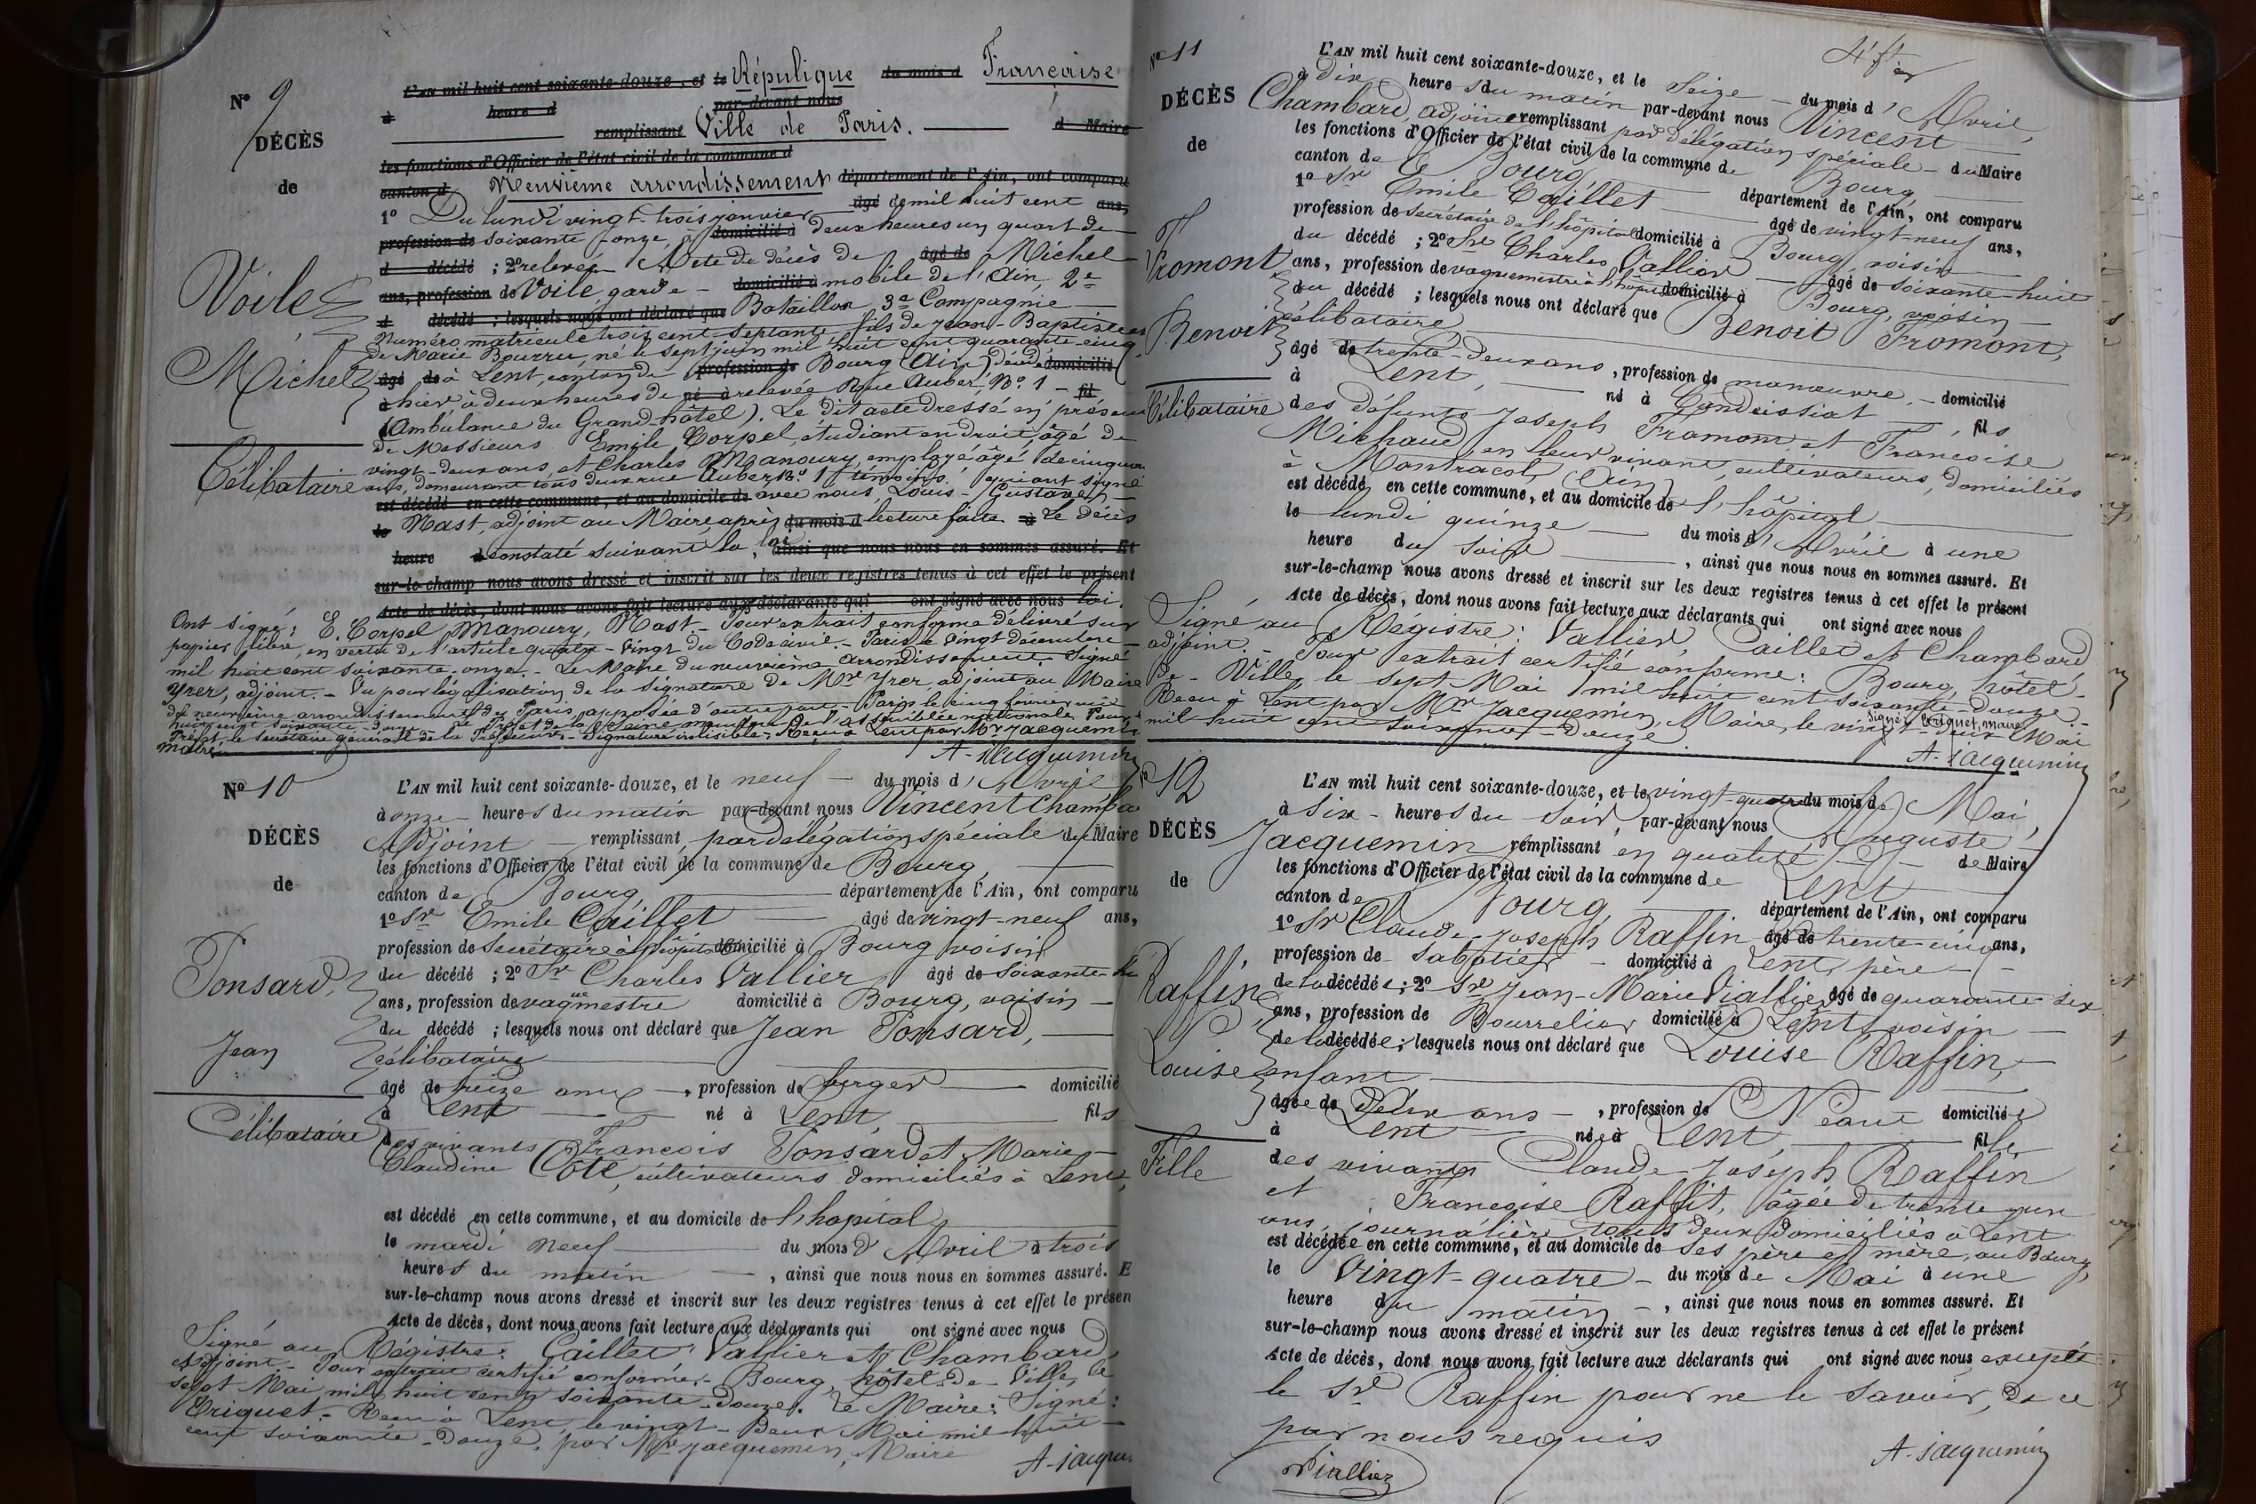 N° 9
DÉCÈS
de
Voile
Michel
Célibataire
L'AN mil huit cent soixante-douze, et le Répulique du mois d Française
à heure d par-devant nous
remplissant Ville de Paris. d Maire
les fonctions d'Officier de l'état civil de la commune d
canton d Neuvième arrondissement département de l'Ain, ont comparu
1° Du lundi vingt-trois janvier âgé de mil huit cent ans,
profession de soixante-onze, à domicilié à deux heures un quart de
d décédé ; 2° relevée Acte de décès de âgé de Michel
ans, profession de Voile, garde - domicilié à mobile de l'Ain, 2e
d décédé ; lesquels nous ont déclaré que Bataillon, 3e Compagnie
Numéro matricule trois cent septante, fils de Jean-Baptiste et
de Marie Bouvru, né le sept juin mil huit cent quarante-cinq
âgé de à Lent, canton de profession de Bourg (Ain) décédé domicilié
à hier à deux heures de né à relevée Rue Auber, N° 1 - fil
(Ambulance du Grand-hôtel). Le dit acte dressé en présence
de Messieurs Emile Corpel, étudiant en droit, âgé de
vingt-deux ans, et Charles Manoury, employé âgé de cinquante
ans, demeurant tous deux rue Auber N° 1 témoins, qui ont signé
est décédé en cette commune, et au domicile de avec nous, Louis-Gustave
le Nast, adjoint au Maire, après du mois d lecture faite à Le décès
heure d constaté suivant la loi ainsi que nous nous en sommes assuré. Et
sur-le-champ nous avons dressé et inscrit sur les deux registres tenus à cet effet le présent
Acte de décès, dont nous avons fait lecture aux déclarants qui ont signé avec nous loi.
Ont signé : E. Corpel, Manoury, Nast - Pour extrait conforme délivré sur
papier libre, en vertu de l'article quatre-vingt du Code civil. - Paris le vingt décembre
mil huit cent soixante-onze. - Le Maire du neuvième arrondissement. Signé
Yver, adjoint. - Vu pour légalisation de la signature de Mr Yver adjoint au Maire
du neuvième arrondissement de Paris, apposée d'autre part - Paris le cinq février mil
huit cent soixante-douze
Préfet, le secrétaire général de la Préfecture. - Signature illisible - Reçu à Lent par Mr Jacquemin
Maire
A. Jacquemin
N° 10
DÉCÈS
de
Ponsard,
Jean
Célibataire
L'AN mil huit cent soixante-douze, et le neuf - du mois d'Avril
à onze - heures du matin par-devant nous Vincent Chambard
Adjoint - remplissant par délégation spéciale du Maire
les fonctions d'Officier de l'état civil de la commune de Bourg
canton de Bourg, département de l'Ain, ont comparu
1° Sr Emile Caillet âgé de vingt-neuf ans,
profession de Secrétaire à l'hôpital domicilié à Bourg voisin
du décédé ; 2° Sr Charles Vallier âgé de soixante-hu
ans, profession de vaguemestre domicilié à Bourg, voisin -
du décédé ; lesquels nous ont déclaré que Jean Ponsard,
célibataire
âgé de treize ans - , profession de berger domicilié
à Lent né à Lent, fils
des vivants François Ponsard et Marie-
Claudine Côte, cultivateurs domiciliés à Lent,
est décédé en cette commune, et au domicile de l'hopital
le mardi neuf du mois d'Avril à trois
heures du matin - , ainsi que nous nous en sommes assuré. E
sur-le-champ nous avons dressé et inscrit sur les deux registres tenus à cet effet le présen
Acte de décès, dont nous avons fait lecture aux déclarants qui ont signé avec nous
Signé au Régistre : Caillet Vallier et Chambard,
Adjoint. - Pour extrait certifié conforme. - Bourg, hôtel-de-Ville, le
sept Mai mil huit cent soixante-douze. Le Maire : Signé :
Criquet. - Reçu à Lent le vingt-deux Mai mil huit-
cent soixante-douze, par Mr Jacquemin, Maire
A. Jacque
4e fer
N° 11
DÉCÈS
de
Fromont
Benoit
Célibataire
L'AN mil huit cent soixante-douze, et le Seize - du mois d'Avril,
à dix heures du matin par-devant nous Vincent
Chambard, adjoint remplissant par délégation spéciale - du Maire
les fonctions d'Officier de l'état civil de la commune de Bourg
canton de Bourg département de l'Ain, ont comparu
1° Sr Emile Caillet âgé de vingt-neuf ans,
profession de secrétaire de l'hôpital domicilié à Bourg, voisin
du décédé ; 2° Sr Charles Vallier âgé de soixante-huit
ans, profession de vaguemestre à l'hôpital domicilié à Bourg, voisin
du décédé ; lesquels nous ont déclaré que Benoit Fromont,
célibataire
âgé de trente-deux ans , profession de manœuvre, - domicilié
à Lent, né à Condeissiat fils
des défunts Joseph Fromont et Françoise
Michaud, en leur vivant, cultivateurs, domiciliés
à Montracol, (Ain)
est décédé en cette commune, et au domicile de l'hôpital
le lundi quinze du mois d'Avril à une
heure du soir , ainsi que nous nous en sommes assuré. Et
sur-le-champ nous avons dressé et inscrit sur les deux registres tenus à cet effet le présent
Acte de décès, dont nous avons fait lecture aux déclarants qui ont signé avec nous
Signé au Registre : Vallier, Caillet et Chambard
adjoint. - Pour extrait certifié conforme : Bourg, hôtel-
de-Ville, le sept Mai mil huit cent soixante-douze -
Signé : Criquet, maire
Reçu à Lent par Mr Jacquemin, Maire, le vingt-deux Mai
mil huit cent soixante-douze.
A. Jacquemin
N° 12
DÉCÈS
de
Raffin,
Louise
Fille
L'AN mil huit cent soixante-douze, et le vingt-quatre du mois de Mai,
à six - heures du soir, par-devant nous Auguste
Jacquemin remplissant en qualité de Maire
les fonctions d'Officier de l'état civil de la commune de Lent
canton de Bourg, département de l'Ain, ont comparu
1° Sr Claude-Joseph Raffin âgé de trente-cinq ans,
profession de sabotier - domicilié à Lent, père -
de la décédée ; 2° Sr Jean-Marie Viallier, âgé de quarante-six
ans, profession de Bourrelier domicilié à Lent, voisin
de la décédée ; lesquels nous ont déclaré que Louise Raffin,
enfant
âgée de Deux ans - , profession de Néant domiciliée
à Lent née à Lent, fille
des vivants Claude-Joseph Raffin
et Françoise Raffit, âgée de trente-un
ans, journalière tous deux domiciliés à Lent
est décédée en cette commune, et au domicile de ses père et mère, au Bourg,
le vingt-quatre - du mois de Mai à une
heure du matin - , ainsi que nous nous en sommes assuré. Et
sur-le-champ nous avons dressé et inscrit sur les deux registres tenus à cet effet le présent
Acte de décès, dont nous avons fait lecture aux déclarants qui ont signé avec nous excepté
le Sr Raffin pour ne le savoir, de ce
par nous requis
Viallier
A. Jacquemin